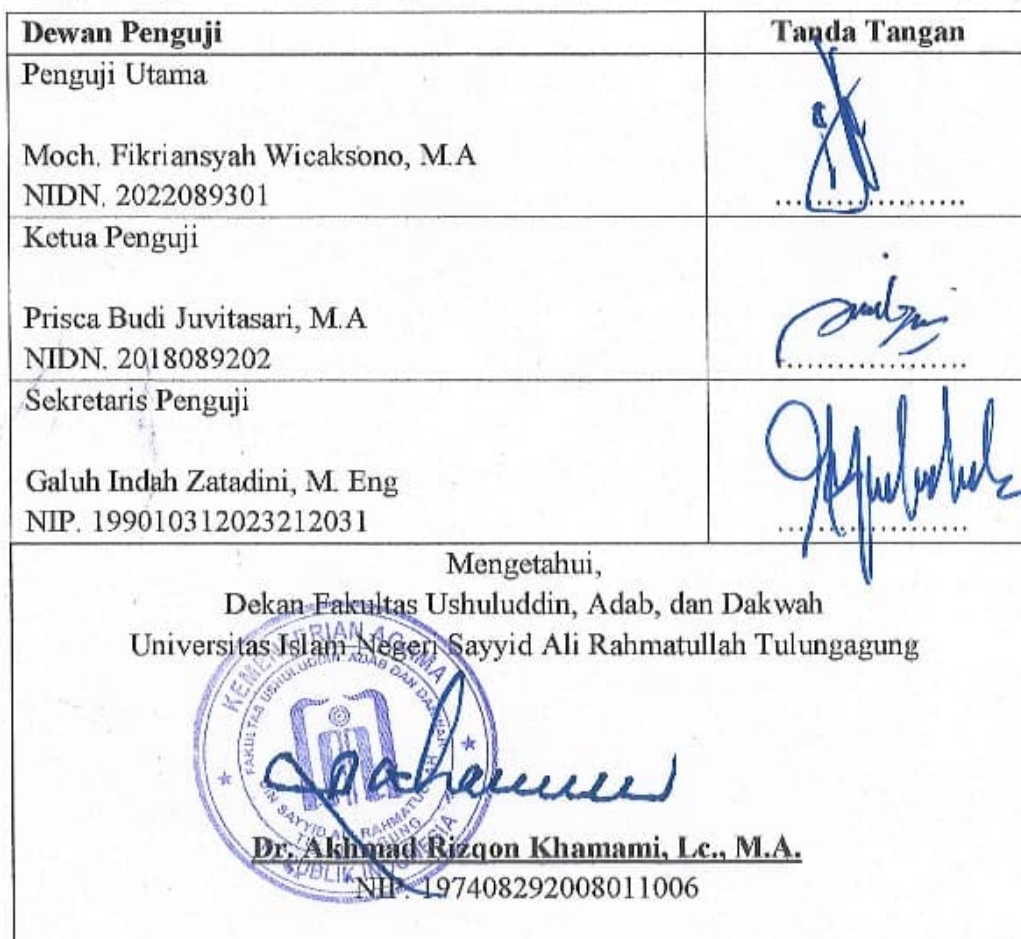 Dewan Penguji
Tanda Tangan
Penguji Utama
Moch. Fikriansyah Wicaksono, M.A
NIDN. 2022089301
Ketua Penguji
Prisca Budi Juvitasari, M.A
NIDN. 2018089202
Sekretaris Penguji
Galuh Indah Zatadini, M. Eng
NIP. 199010312023212031
Mengetahui,
Dekan Fakultas Ushuluddin, Adab, dan Dakwah
Universitas Islam Negeri Sayyid Ali Rahmatullah Tulungagung
KEMENTERIAN AGAMA
FAKULTAS USHULUDDIN ADAB DAN DAKWAH
UIN SAYYID ALI RAHMATULLAH
TULUNGAGUNG
REPUBLIK INDONESIA
Dr. Akhmad Rizqon Khamami, Lc., M.A.
NIP. 197408292008011006